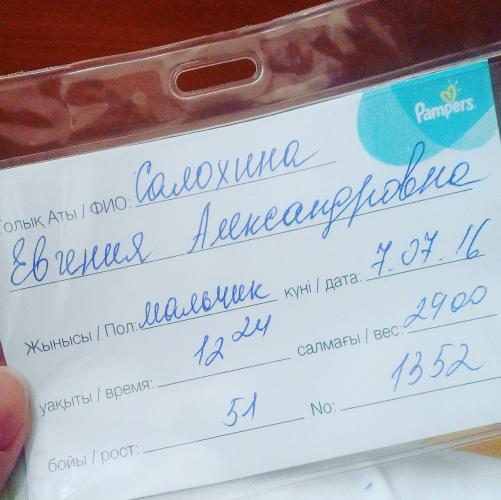 Pampers
Толық Аты / ФИО: Салохина
Евгения Александровна
Жынысы / Пол: мальчик күні / дата: 7.07.16
уақыты / время: 12 24 салмағы / вес: 2900
бойы / рост: 51 No: 1352